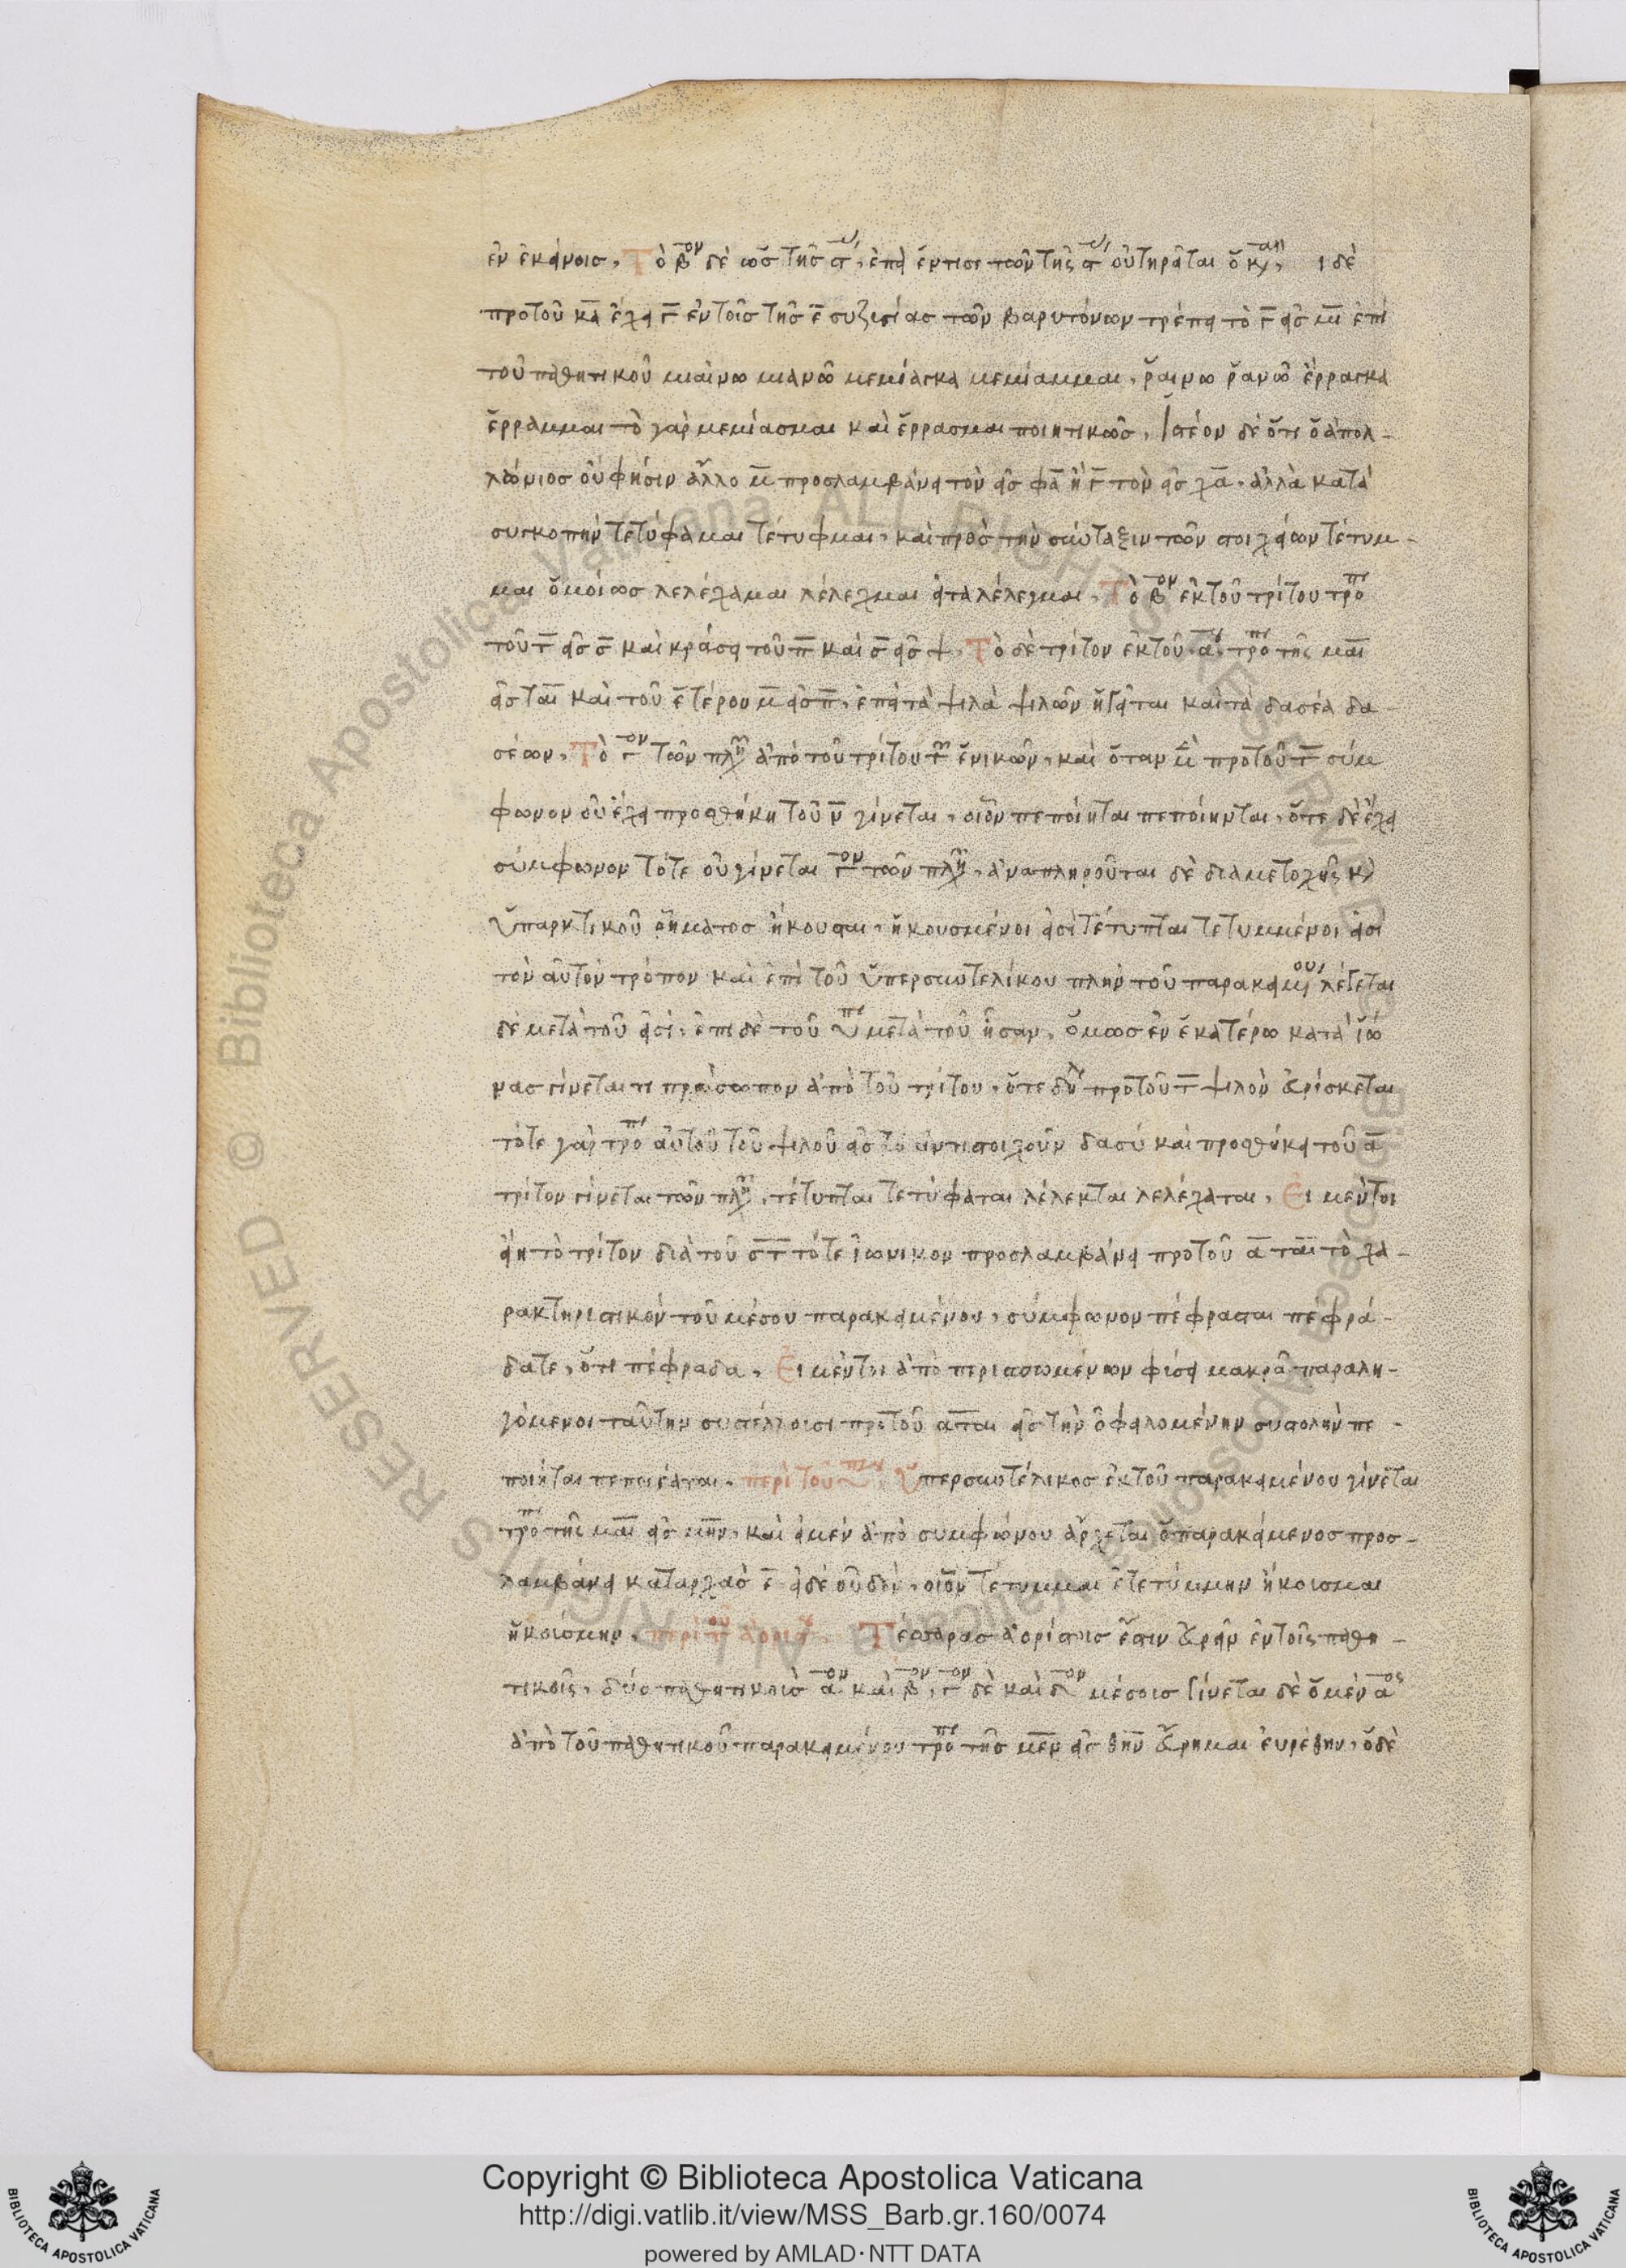 ἐν ἐκείνοις, Τὸ β̅ον δὲ ὡς τῆς α̅, ἐπεὶ ἔν τισι τῶν τῆς α̅ οὐ τηρεῖται ὁ ι δὲ
πρὸ τοῦ κα ἔχει γ̅ ἐν τοῖς τῆς ε̅ συζυγίας τῶν βαρυτόνων τρέπει τὸ γ̅ εἰς μ̅ ἐπὶ
τοῦ παθητικοῦ μιαίνω μιανῶ μεμίαγκα μεμίαμμαι, ῥαίνω ῥανῶ ἔρραγκα
ἔρραμμαι τὸ γὰρ μεμίασμαι καὶ ἔρρασμαι ποιητικῶς, Ἰστέον δὲ ὅτι ὁ ἀπολ-
λώνιος οὔ φησιν ἄλλο μ̅ προσλαμβάνει τὸν εἰς φα̅ ἢ τὸν εἰς χα̅. ἀλλὰ κατὰ
συγκοπὴν τετύφαμαι τέτυφμαι, καὶ πρὸς τὴν σύνταξιν τῶν στοιχείων τέτυμ-
μαι ὁμοίως λελέχαμαι λέλεχμαι εἶτα λέλεγμαι, Τὸ β̅ον ἐκ τοῦ τρίτου τροπῇ
τοῦ τ̅ εἰς σ̅ καὶ κράσει τοῦ π̅ καὶ σ̅ εἰς ψ. Τὸ δὲ τρίτον ἐκ τοῦ α̅ου τροπῇ τῆς μαι
εἰς ται καὶ τοῦ ἑτέρου μ̅ εἰς π̅, ἐπεὶ τὰ ψιλὰ ψιλῶν ἡγεῖται καὶ τὰ δασέα δα-
σέων, Τὸ γ̅ον τῶν πλη ἀπὸ τοῦ τρίτου ἑνικῶν, καὶ ὅταν μὲν πρὸ τοῦ τ̅ σύμ
φωνον οὐ ἔχει προσθήκη τοῦ ν̅ γίνεται, οἷον πεποίηται πεποίηνται, ὅτε δὲ ἔχει
σύμφωνον τότε οὐ γίνεται γ̅ον τῶν πλη, ἀναπληροῦται δὲ διὰ μετοχῆς κὶ
ὑπαρκτικοῦ ῥήματος ἤκουσται, ἠκουσμένοι εἰσὶ τέτυπται τετυμμένοι εἰσὶ
τὸν αὐτὸν τρόπον καὶ ἐπὶ τοῦ ὑπερσυντελίκου πλὴν τοῦ παρακειμου λέγεται
δὲ μετὰ τοῦ εἰσί. ἐπὶ δὲ τοῦ ὑπ μετὰ τοῦ ἦσαν, ὅμως ἐν ἑκατέρω κατὰ ἴω
νας γίνεται τι πρόσωπον ἀπὸ τοῦ τρίτου, ὅτε δὴ πρὸ τοῦ τ̅ ψιλὸν εὑρίσκεται
τότε γὰρ τροπ αὐτοῦ τοῦ ψιλοῦ εἰς τὸ ἀντιστοιχοῦν δασὺ καὶ προσθήκει τοῦ α̅
τρίτον γίνεται τῶν πλη, τέτυπται τετύφαται λέλεκται λελέχαται, Εἰ μέντοι
εἴη τὸ τρίτον διὰ τοῦ σ̅τ̅ τότε ἰωνικον προσλαμβάνει πρὸ τοῦ α̅ται τὸ χα-
ρακτηριστικὸν τοῦ μέσου παρακειμένου, σύμφωνον πέφρασται πεφρά-
δατε, ὅτι πέφραδα, Εἰ μέντοι ἀπὸ περισπωμένων φύσει μακρᾶ παραλη-
γόμενοι ταύτην συστέλλουσι πρὸ τοῦ αται εἰς τὴν ὀφειλομένην συστολὴν πε -
ποίηται πεποιέαται. περὶ τοῦ ὑπ Ὑπερσυντέλικος ἐκ τοῦ παρακειμένου γίνεται
τροπ τῆς μαι εἰς μην, καὶ εἰ μὲν ἀπὸ συμφώνου ἄρχεται ὁ παρακείμενος προσ-
λαμβάνει κατἀρχὰς ε̅ εἰ δὲ οὐδέν, οἷον τέτυμμαι ἐτετύμμην ἤκουσμαι
ἠκούσμην, περὶ τοῦ ἀορίστου. Τέσσαρας ἀορίστους ἔστιν εὑρεῖν ἐν τοῖς παθη-
τικοῖς, δύο παθητικοὺς α̅ον καὶ β̅ον, γ̅ον δὲ καὶ δ̅ον μέσους Γίνεται δὲ ὁ μὲν α̅ος
ἀπὸ τοῦ παθητικοῦ παρακειμένου τροπ τῆς μεν εἰς θην εὕρημαι εὑρέθην, ὁ δὲ
Copyright © Biblioteca Apostolica Vaticana
http://digi.vatlib.it/view/MSS_Barb.gr.160/0074
powered by AMLAD·NTT DATA